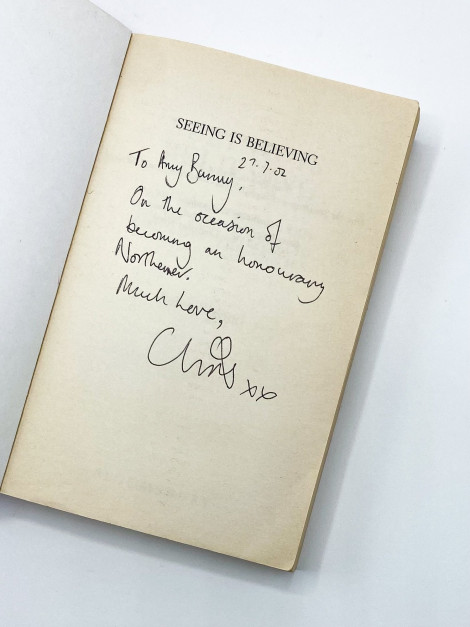 SEEING IS BELIEVING
27.7.02
To Amy Bunny,
On the occasion of
becoming an honourary
Northerner.
Much Love,
Chris xx